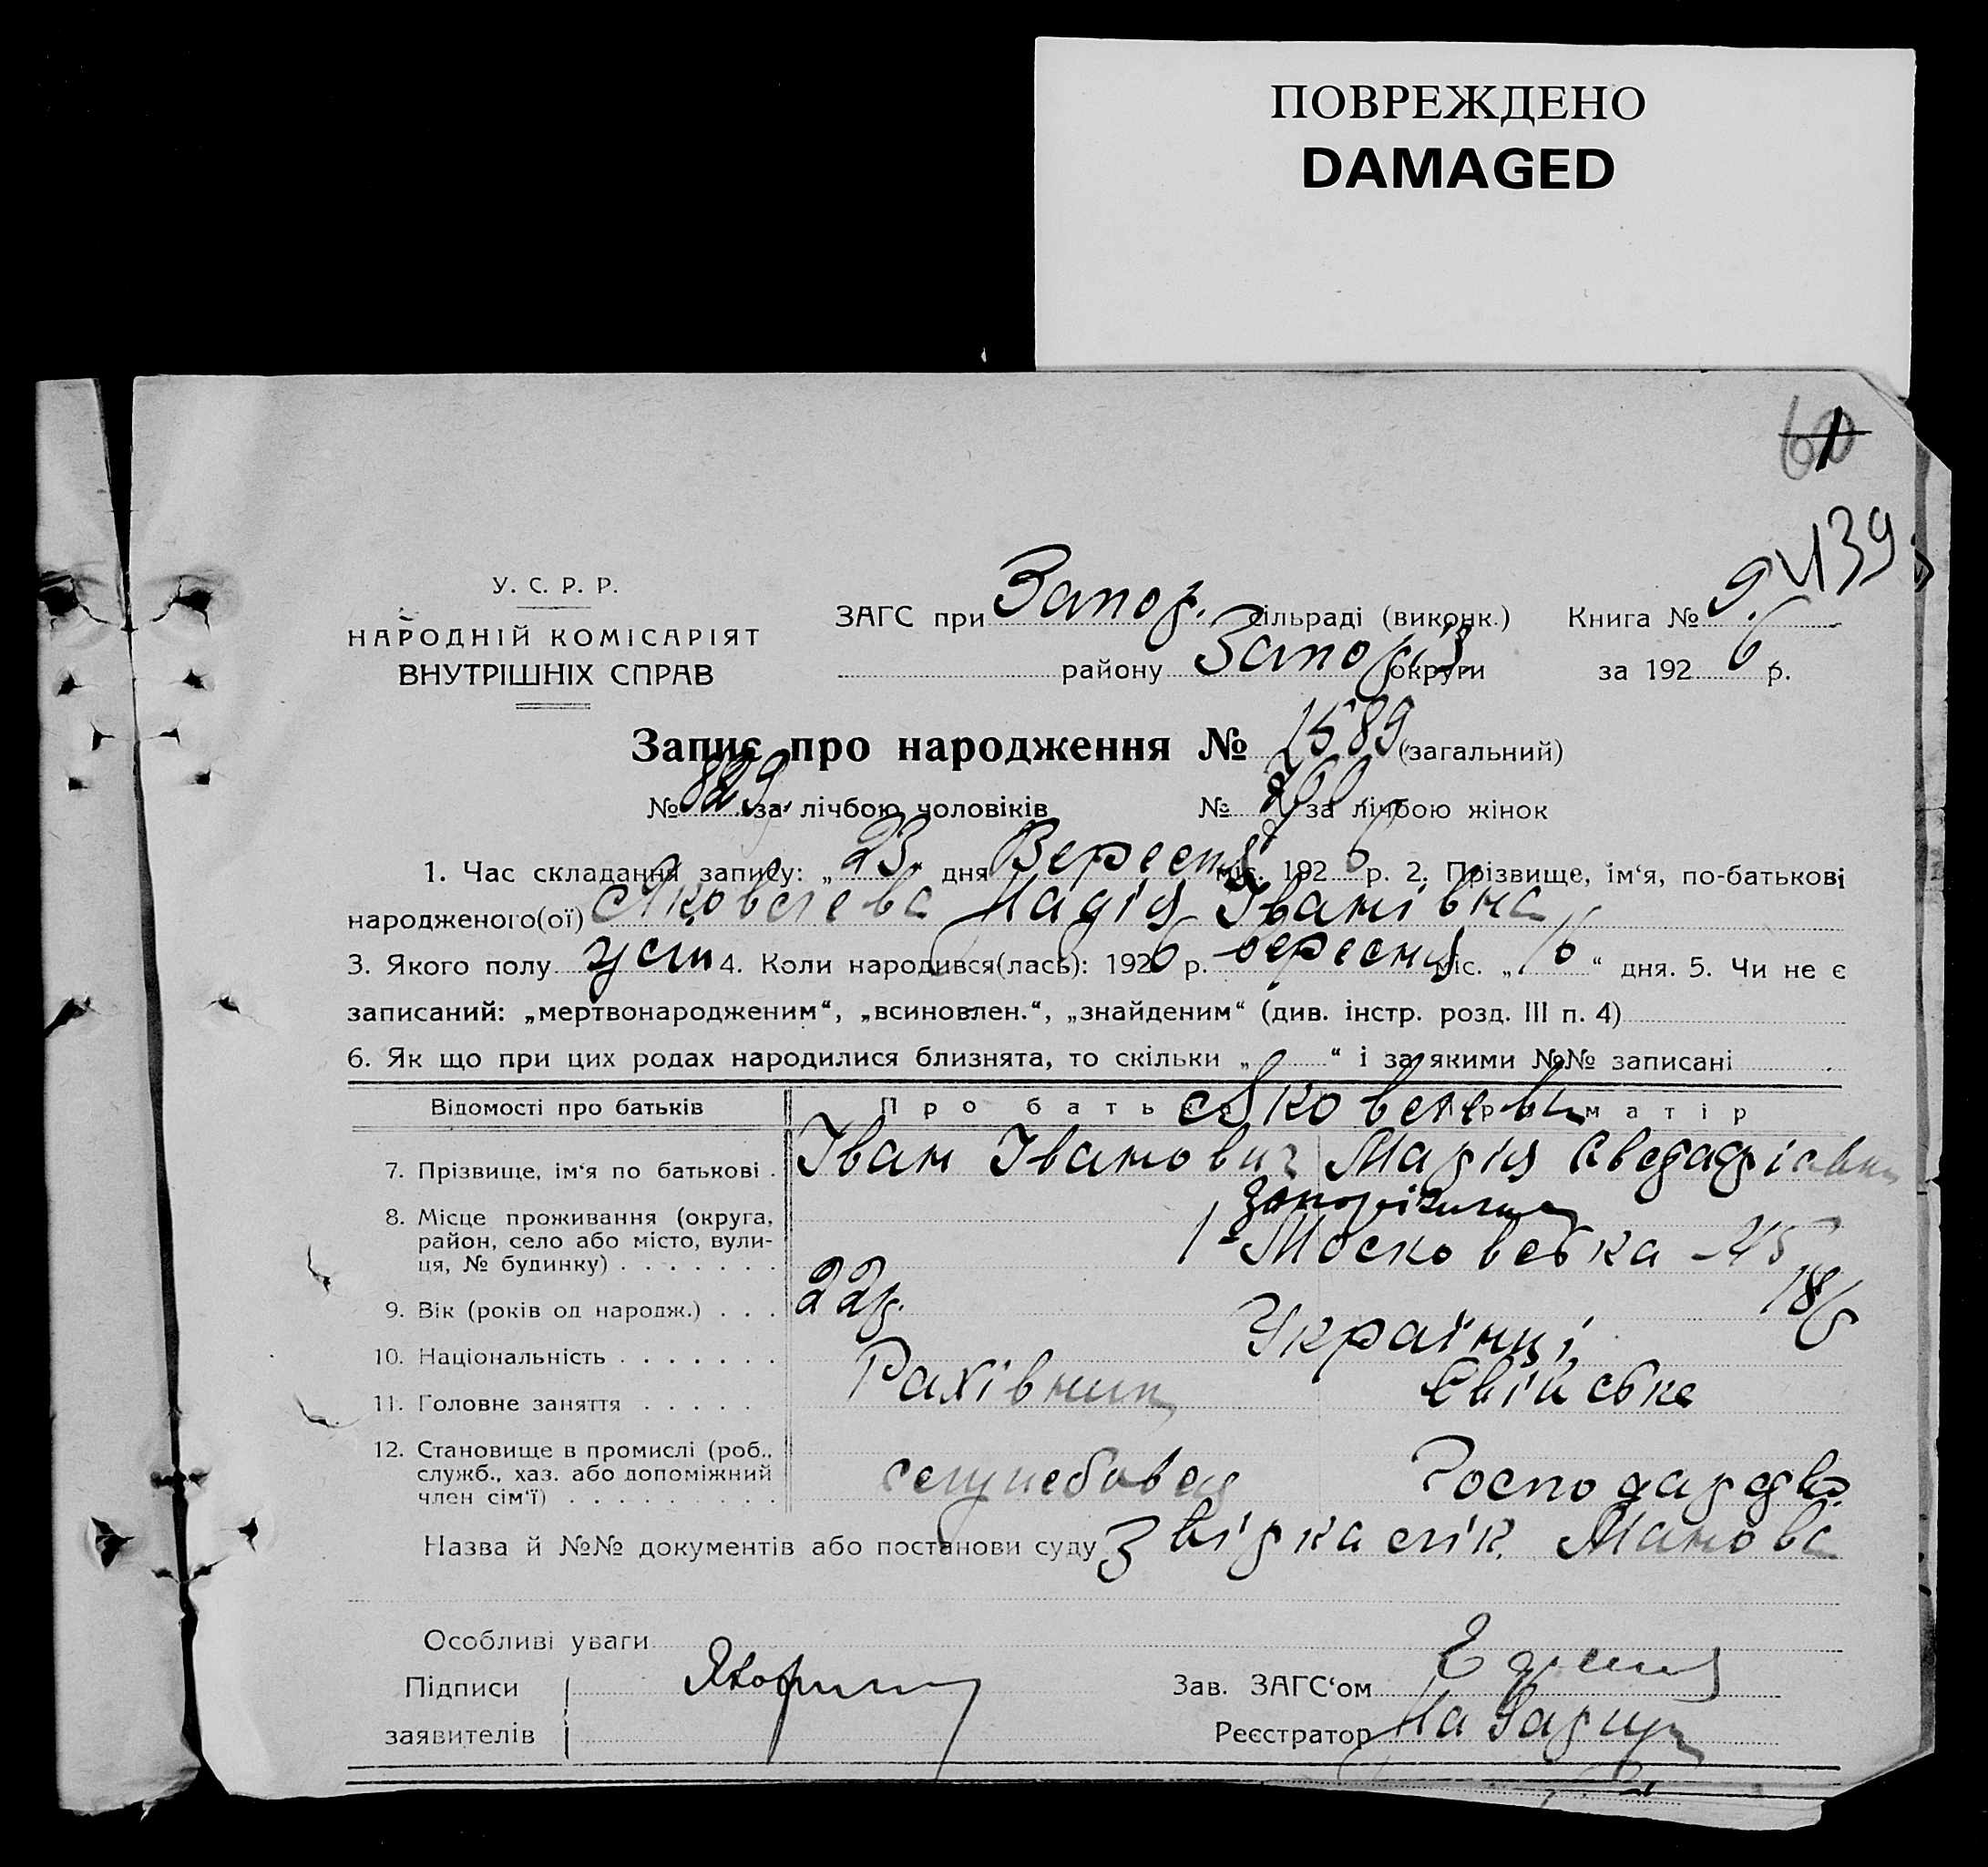 ПОВРЕЖДЕНО
DAMAGED
139
У. С. Р. Р.
НАРОДНІЙ КОМІСАРІЯТ
ВНУТРІШНІХ СПРАВ
ЗАГС при Запор. сільраді (виконк.) Книга № 9
району Запоріз округи за 1926 р.
Запис про народження № 1589 (загальний)
№ 829 за лічбою чоловіків № 760 за лічбою жінок
1. Час складання запису: „23" дня Вересня міс. 1926 р. 2. Прізвище, ім‘я, по-батькові
народженого(ої) Яковлева Надія Іванівна
3. Якого полу 4. Коли народився(лась): 1926 р. вересня міс. „16“ дня. 5. Чи не є
записаний: „мертвонародженим“, „всиновлен.“, „знайденим“ (див. інстр. розд. III п. 4)
6. Як що при цих родах народилися близнята, то скільки „ “ і за якими №№ записані
Відомості про батьків Про батька Про матір
Яковлеви
7. Прізвище, ім‘я по батькові . Іван Іванович Марія
8. Місце проживання (округа, район, село або місто, вули-
ця, № будинку) . . . . . . . 1 Московська - 45
9. Вік (років од народж.) . . . 22р. 18р
10. Національність . . . . . . . Українці
11. Головне заняття . . . . . Рахівник Свійське
12. Становище в промислі (роб.,
служб., хаз. або допоміжний
член сім‘ї) . . . . . . . . . служебовец Господарство
Назва й №№ документів або постанови суду Звірка лік. Манова
Особливі уваги
Підписи Зав. ЗАГС‘ом
заявителів Реєстратор